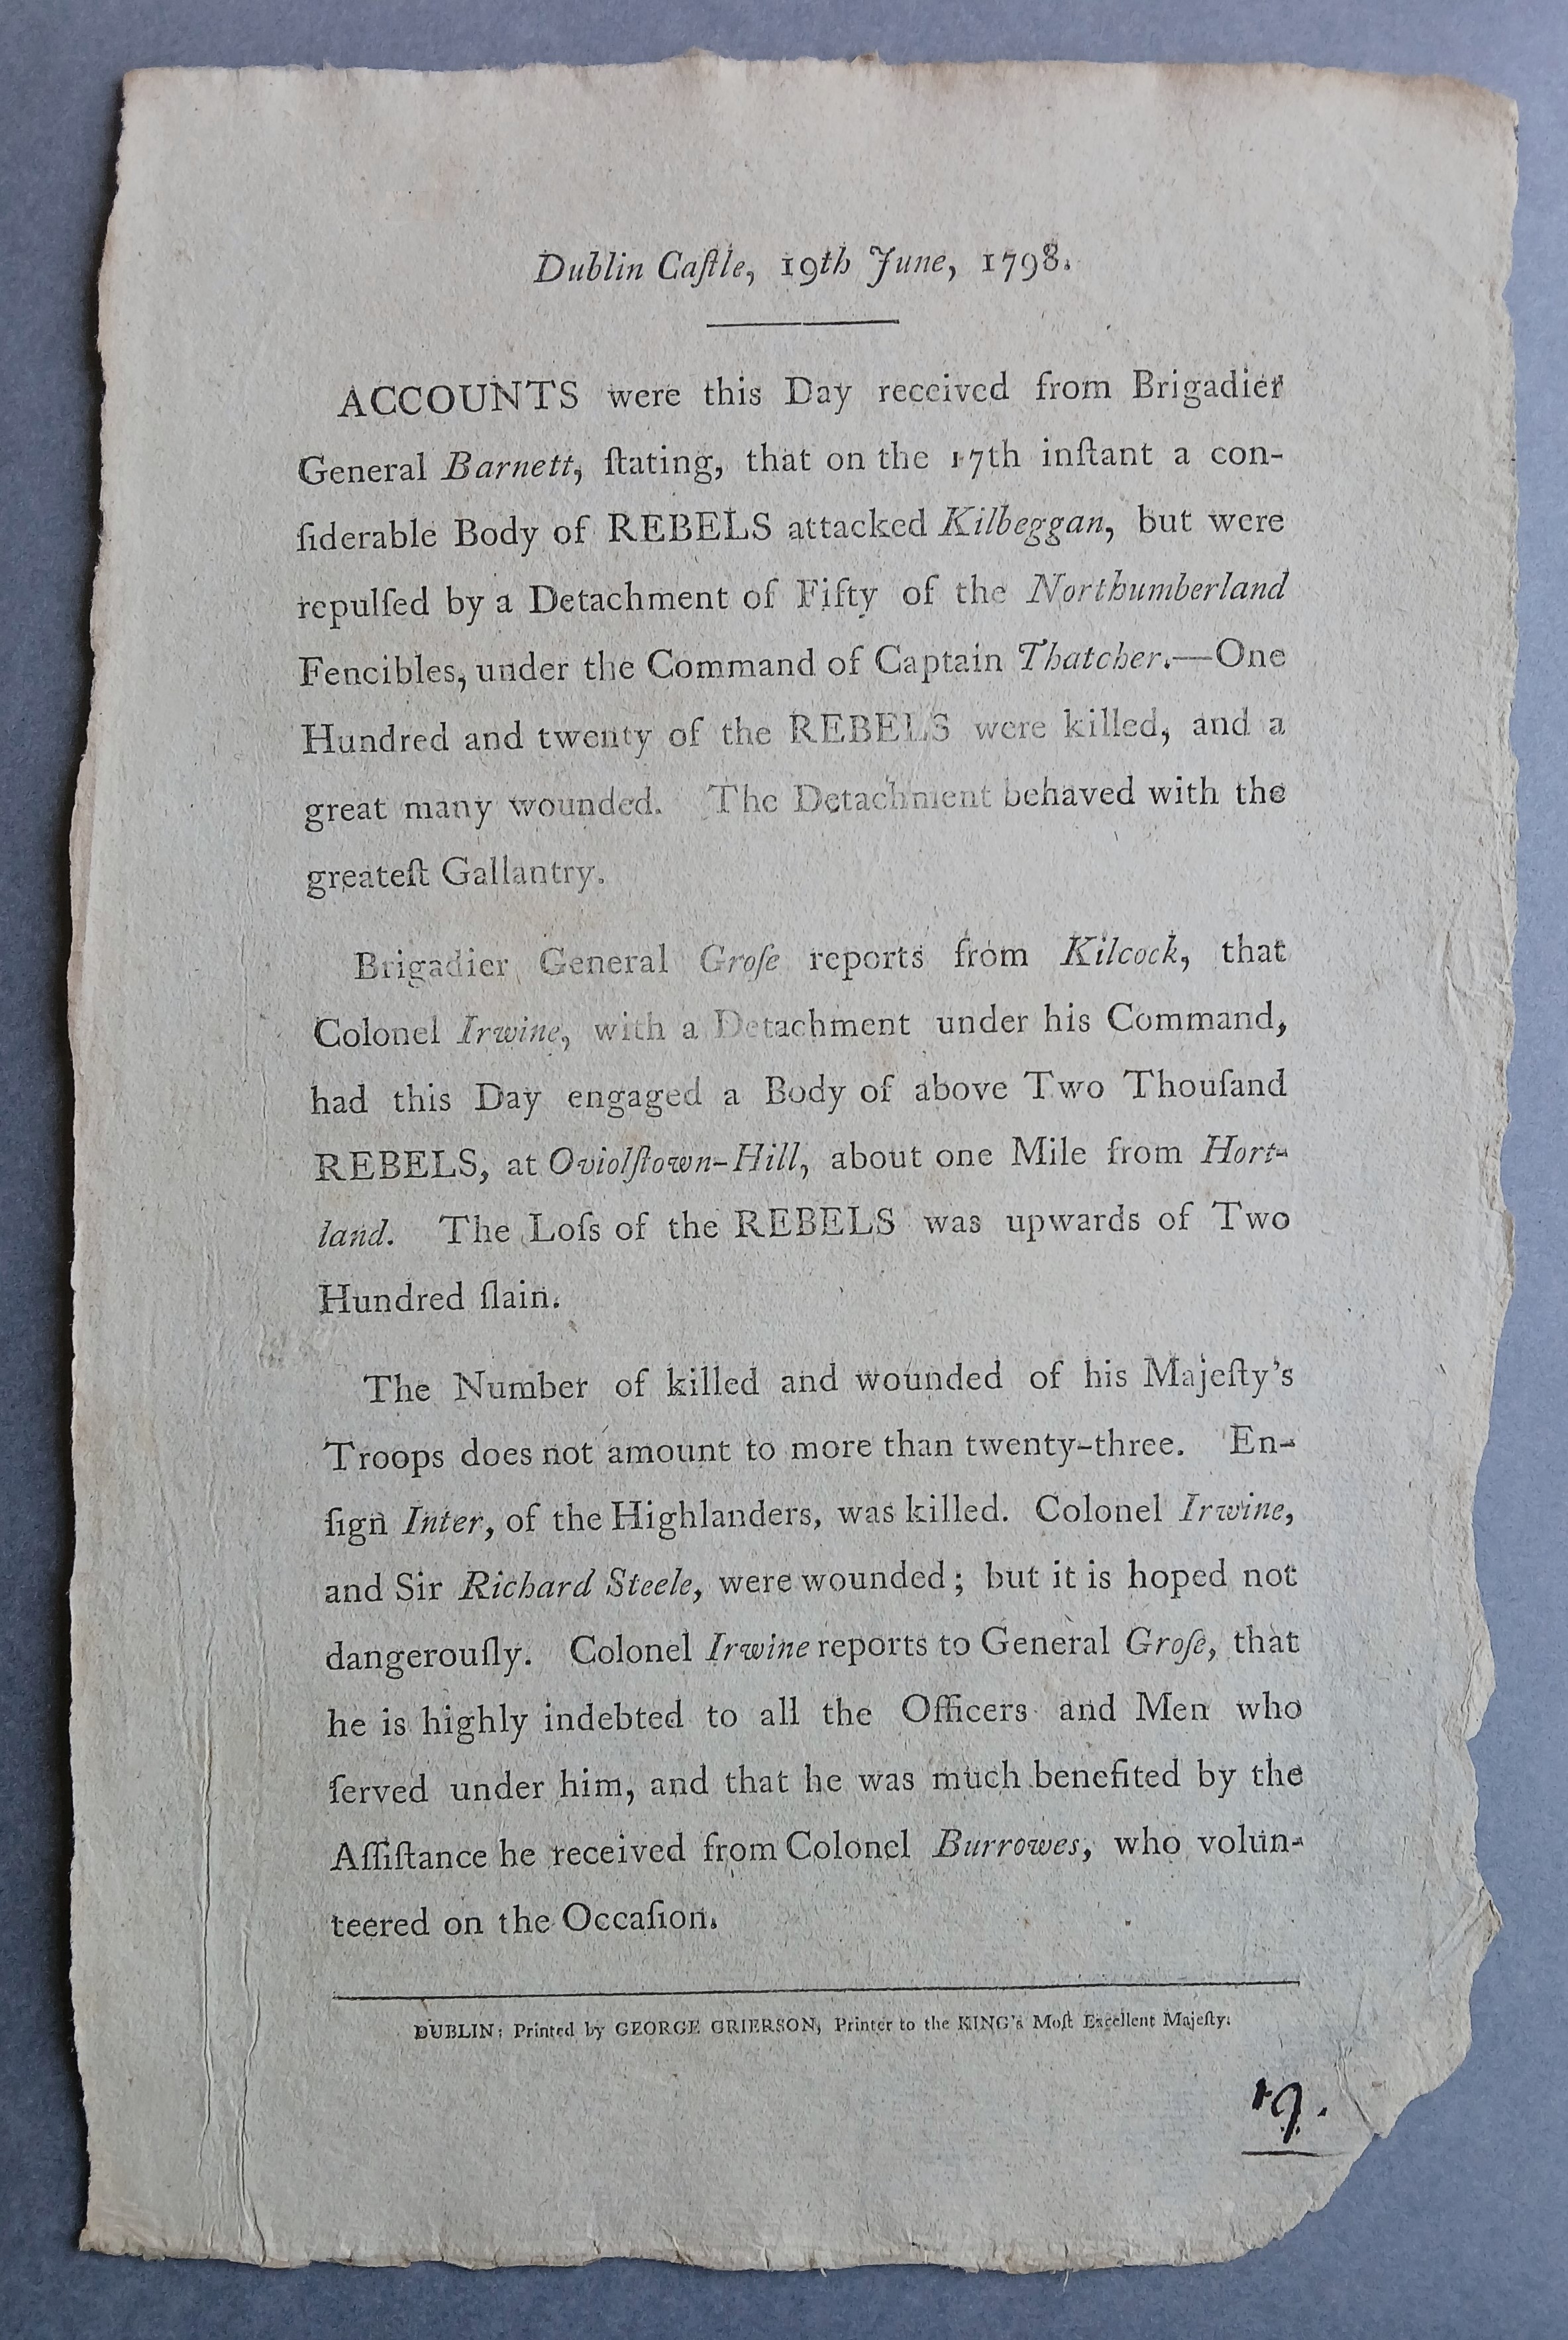 Dublin Caſtle, 19th June, 1798.
ACCOUNTS were this Day received from Brigadier
General Barnett, ſtating, that on the 17th inſtant a con-
ſiderable Body of REBELS attacked Kilbeggan, but were
repulſed by a Detachment of Fifty of the Northumberland
Fencibles, under the Command of Captain Thatcher.—One
Hundred and twenty of the REBELS were killed, and a
great many wounded. The Detachment behaved with the
greateſt Gallantry.
Brigadier General Groſe reports from Kilcock, that
Colonel Irwine, with a Detachment under his Command,
had this Day engaged a Body of above Two Thouſand
REBELS, at Oviolſtown-Hill, about one Mile from Hort-
land. The Loſs of the REBELS was upwards of Two
Hundred ſlain.
The Number of killed and wounded of his Majeſty's
Troops does not amount to more than twenty-three. En-
ſign Inter, of the Highlanders, was killed. Colonel Irwine,
and Sir Richard Steele, were wounded; but it is hoped not
dangerouſly. Colonel Irwine reports to General Groſe, that
he is highly indebted to all the Officers and Men who
ſerved under him, and that he was much benefited by the
Aſſiſtance he received from Colonel Burrowes, who volun-
teered on the Occaſion.
DUBLIN: Printed by GEORGE GRIERSON, Printer to the KING's Moſt Excellent Majeſty.
19.